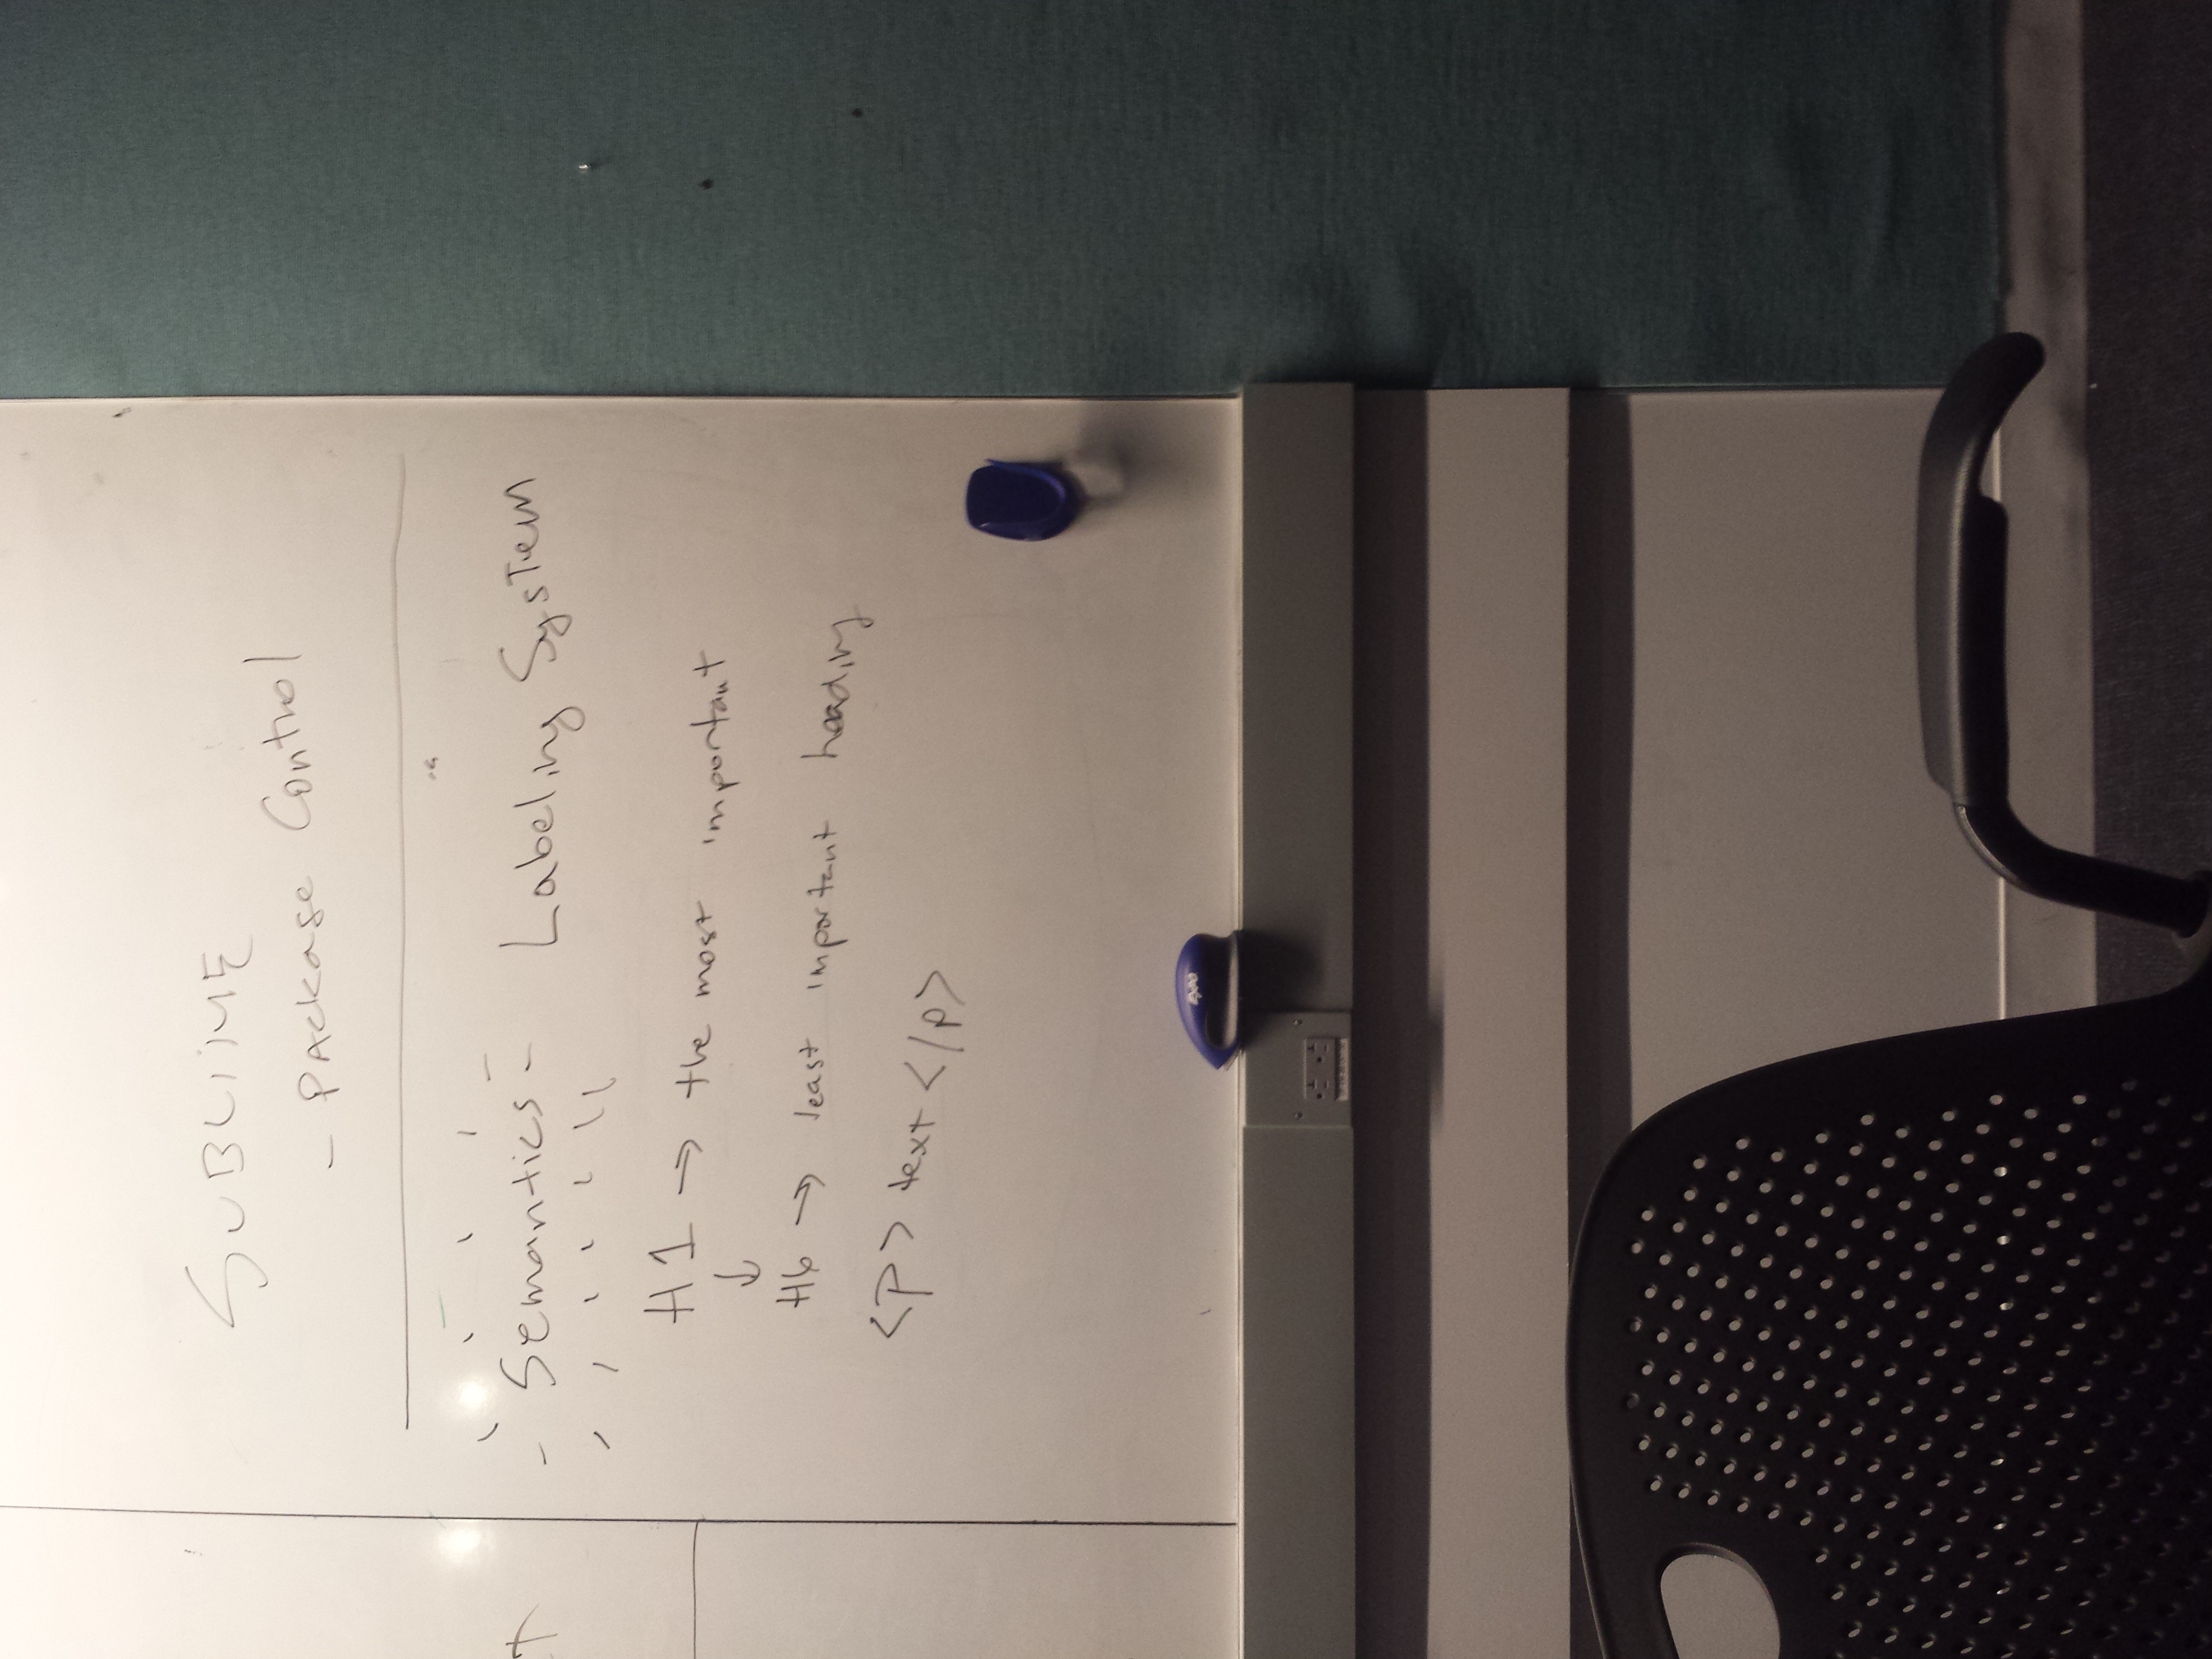 SUBLIME
- Package Control
Semantics - Labeling System
H1 → the most important
↓
H6 → least important heading
<P> text </p>
EXPO